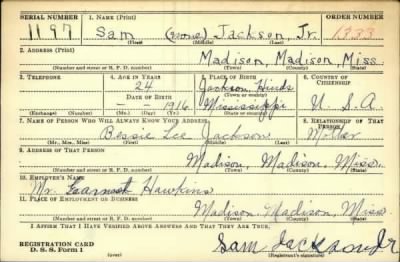 SERIAL NUMBER 1. NAME (Print) ORDER NUMBER
1197 Sam (none) Jackson, Jr.
(First) (Middle) (Last)
2. ADDRESS (Print)
Madison, Madison, Miss.
(Number and street or R. F. D. number) (Town) (County) (State)
3. TELEPHONE 4. AGE IN YEARS 5. PLACE OF BIRTH 6. COUNTRY OF CITIZENSHIP
24 Jackson, Hinds
DATE OF BIRTH (Town or county)
- - 1916 Mississippi U. S. A.
(Exchange) (Number) (Mo.) (Day) (Yr.) (State or country)
7. NAME OF PERSON WHO WILL ALWAYS KNOW YOUR ADDRESS 8. RELATIONSHIP OF THAT PERSON
Bessie Lee Jackson Mother
(Mr., Mrs., Miss) (First) (Middle) (Last)
9. ADDRESS OF THAT PERSON
Madison, Madison, Miss.
(Number and street or R. F. D. number) (Town) (County) (State)
10. EMPLOYER'S NAME
Mr. Earnest Hawkins
11. PLACE OF EMPLOYMENT OR BUSINESS
Madison Madison, Miss
(Number and street or R. F. D. number) (Town) (County) (State)
I AFFIRM THAT I HAVE VERIFIED ABOVE ANSWERS AND THAT THEY ARE TRUE.
REGISTRATION CARD
D. S. S. Form 1 (over) Sam Jackson Jr
(Registrant's signature)